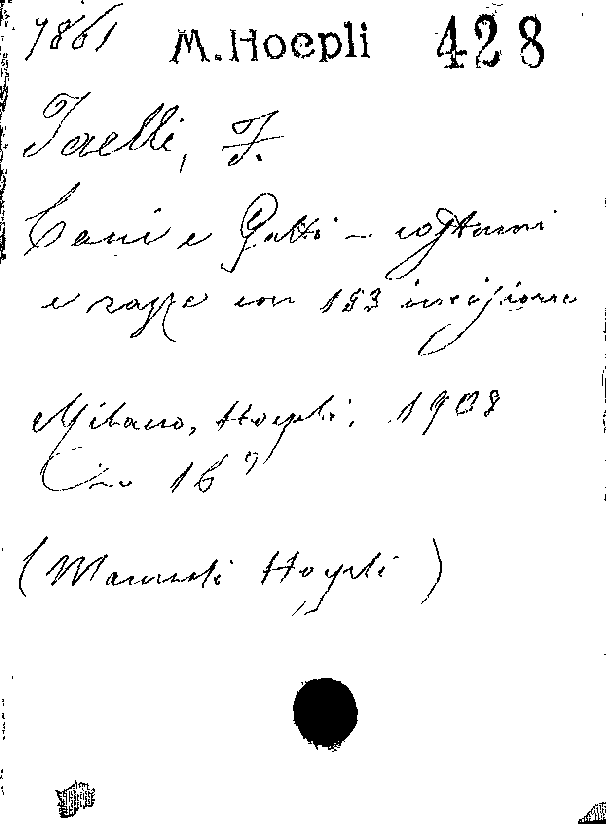 7861 M. Hoepli 428
Faelli, F.
Cani e Gatti - costumi
e razze con 153 incisione
Milano, Hoepli, 1908
in 16°
(Manuali Hoepli)